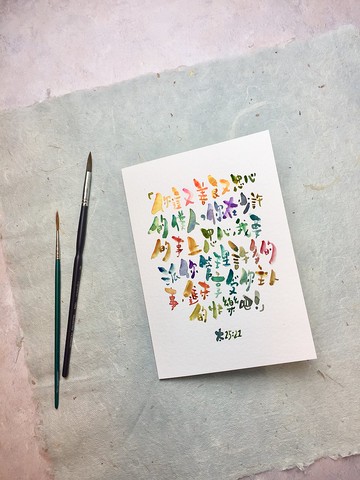 「你這又善良又忠心
的僕人,你在少許
的事上忠心,我要
派你管理許多的
事,進來享受你主人
的快樂吧!」
太25:21